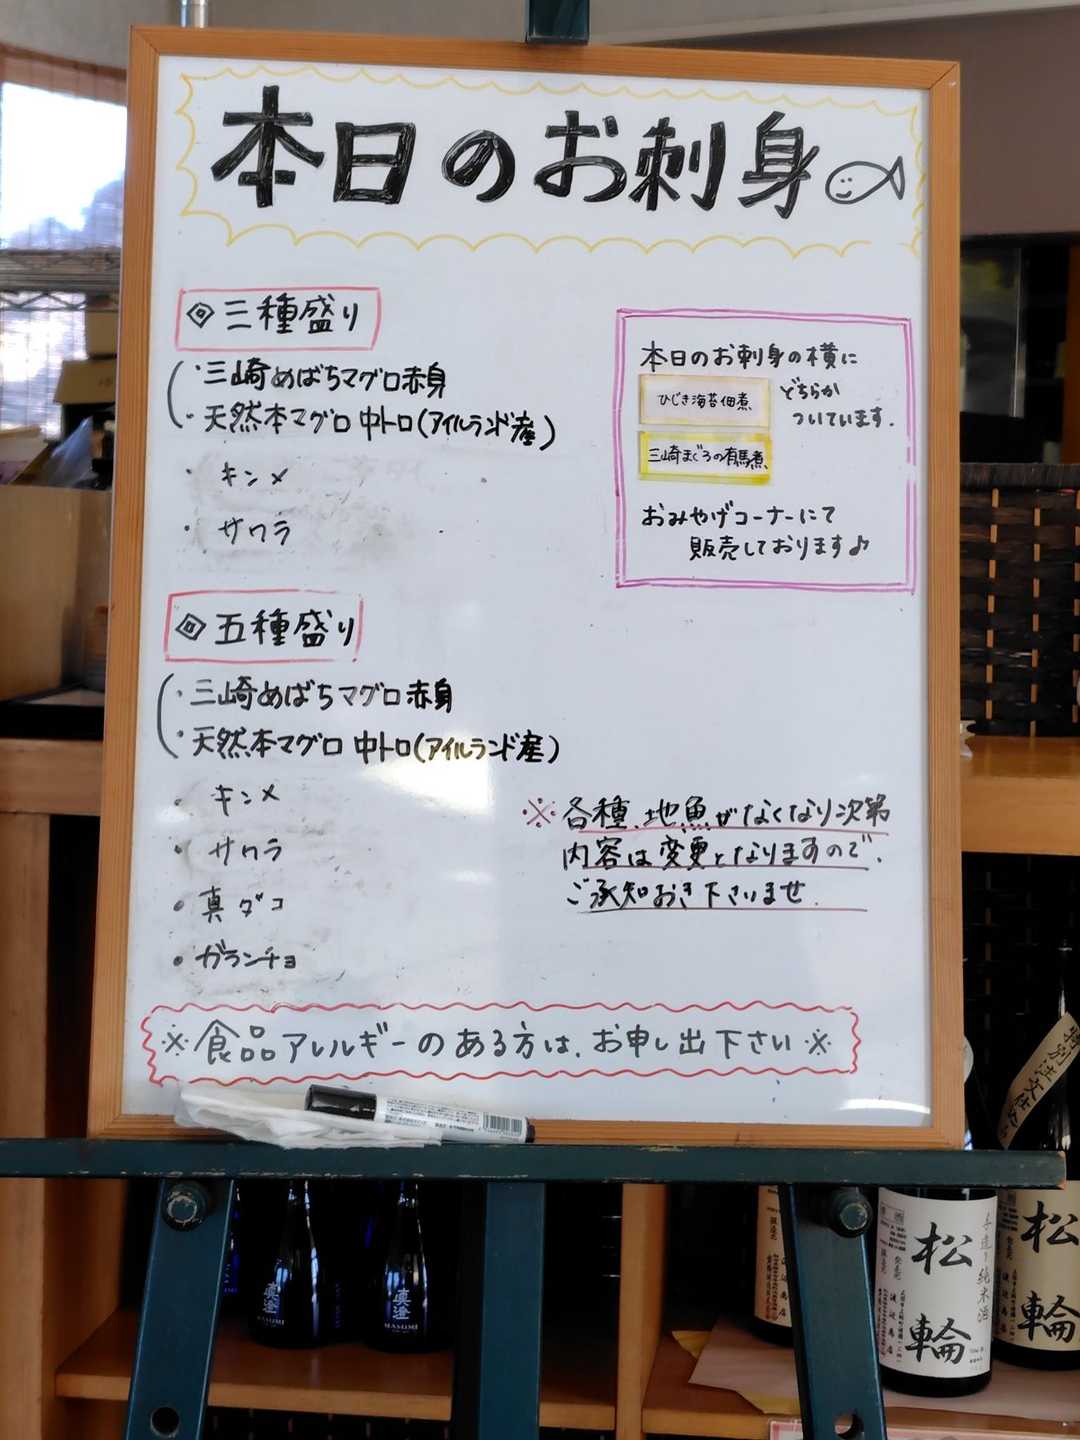 本日のお刺身
◈三種盛り
・三崎めばちマグロ赤身
・天然本マグロ 中トロ(アイルランド産)
・キンメ
・サワラ
本日のお刺身の横に
ひじき海苔佃煮
三崎まぐろの有馬煮
どちらか
ついています.
おみやげコーナーにて
販売しております♪
◈五種盛り
・三崎めばちマグロ赤身
・天然本マグロ 中トロ(アイルランド産)
・キンメ
・サワラ
・真ダコ
・ガランチョ
※各種、地魚がなくなり次第
内容は変更となりますので、
ご承知おき下さいませ.
※食品アレルギーのある方は、お申し出下さい※
真澄
MASUMI
真澄
MASUMI
手造り純米酒
松輪
松輪